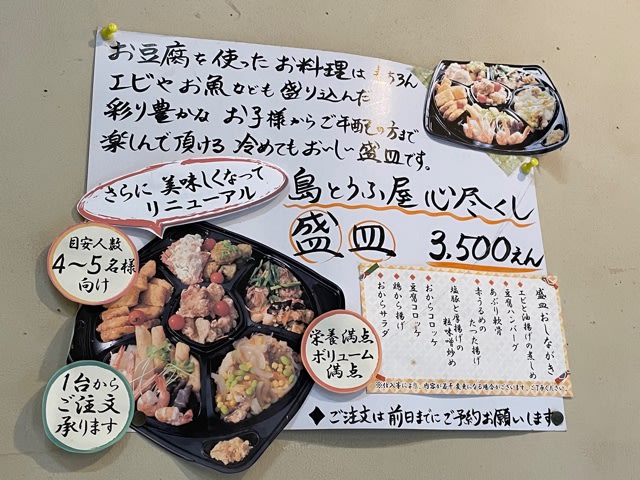 お豆腐を使ったお料理はもちろん
エビやお魚なども盛り込んだ
彩り豊かな お子様からご年配の方まで
楽しんで頂ける 冷めてもお〜し〜 盛皿です。
さらに 美味しくなって
リニューアル
島とうふ屋 心尽くし
盛皿 3,500えん
目安人数
4〜5名様
向け
盛皿おしながき
エビと油揚げの煮しめ
豆腐ハンバーグ
あぶり軟骨
赤うるめの
たつた揚げ
塩豚と厚揚げの
粒味噌炒め
おからコロッケ
豆腐コロッケ
鶏から揚げ
おからサラダ
※仕入等により、内容が若干変更になる場合がございます。ご了承ください。
栄養満点
ボリューム
満点
1台から
ご注文
承ります
◆ご注文は前日までにご予約お願いします◆